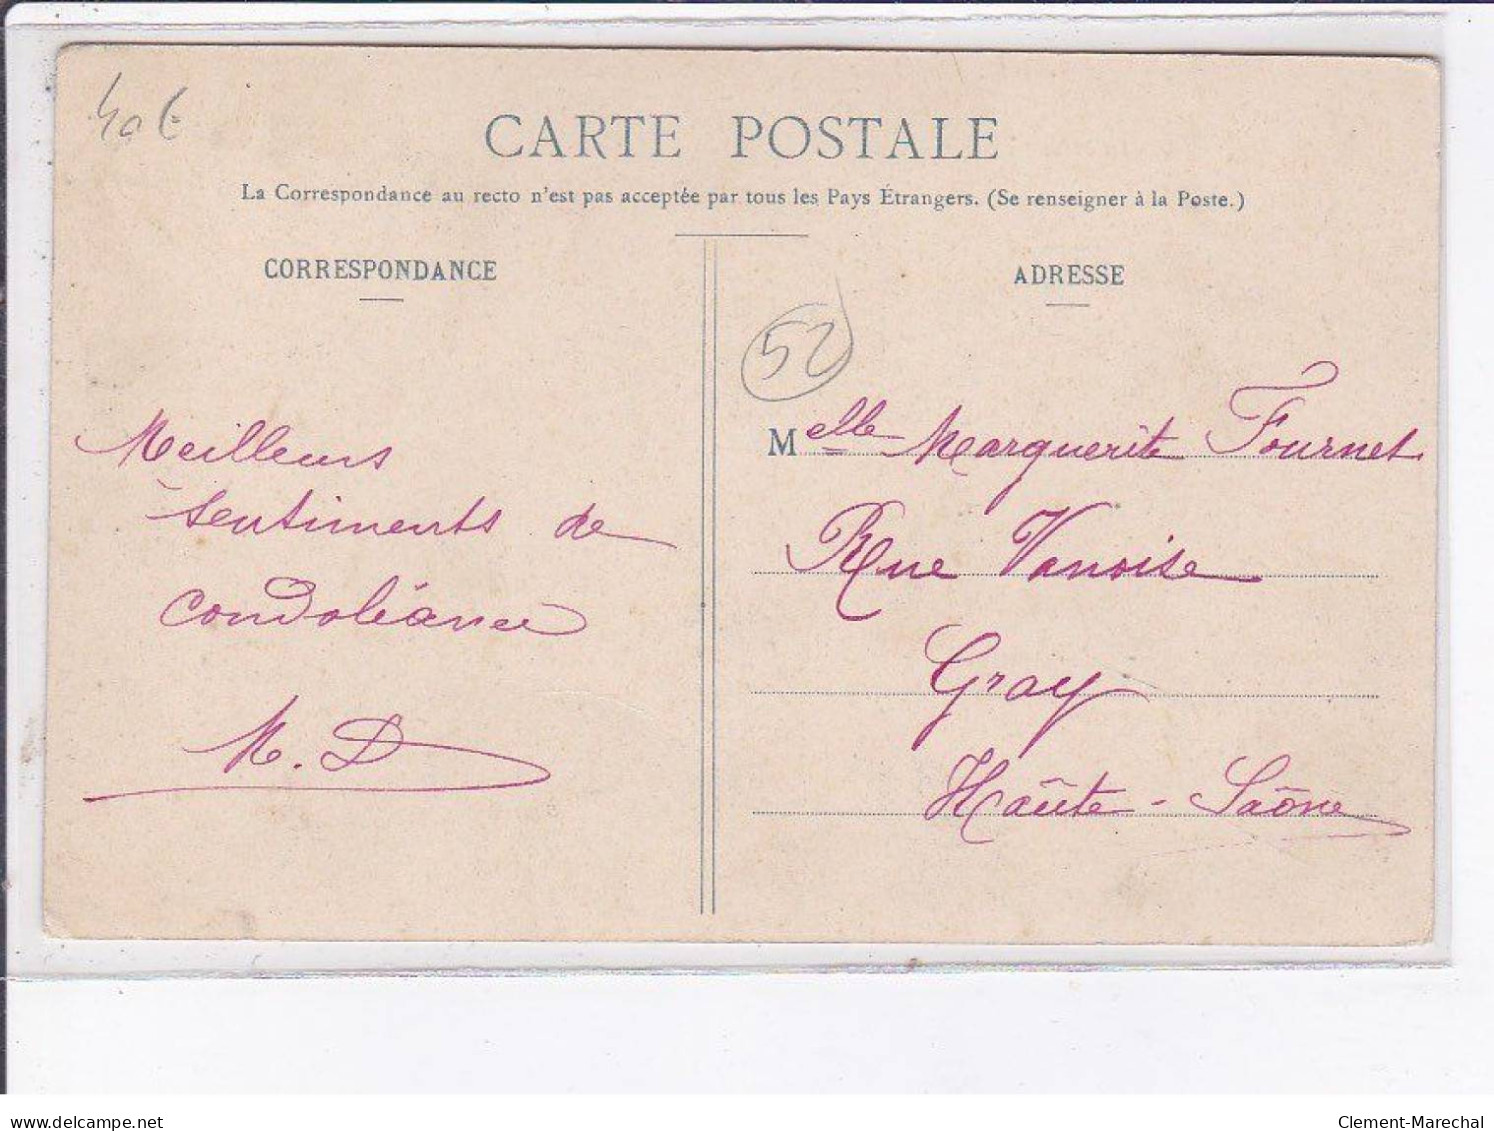 40€
CARTE POSTALE
La Correspondance au recto n'est pas acceptée par tous les Pays Étrangers. (Se renseigner à la Poste.)
CORRESPONDANCE
Meilleurs
sentiments de
condoléance
M. D
ADRESSE
52
Melle Marguerite Fournet
Rue Vanoise
Gray
Haûte-Saône
delcampe.net
Clement-Marechal